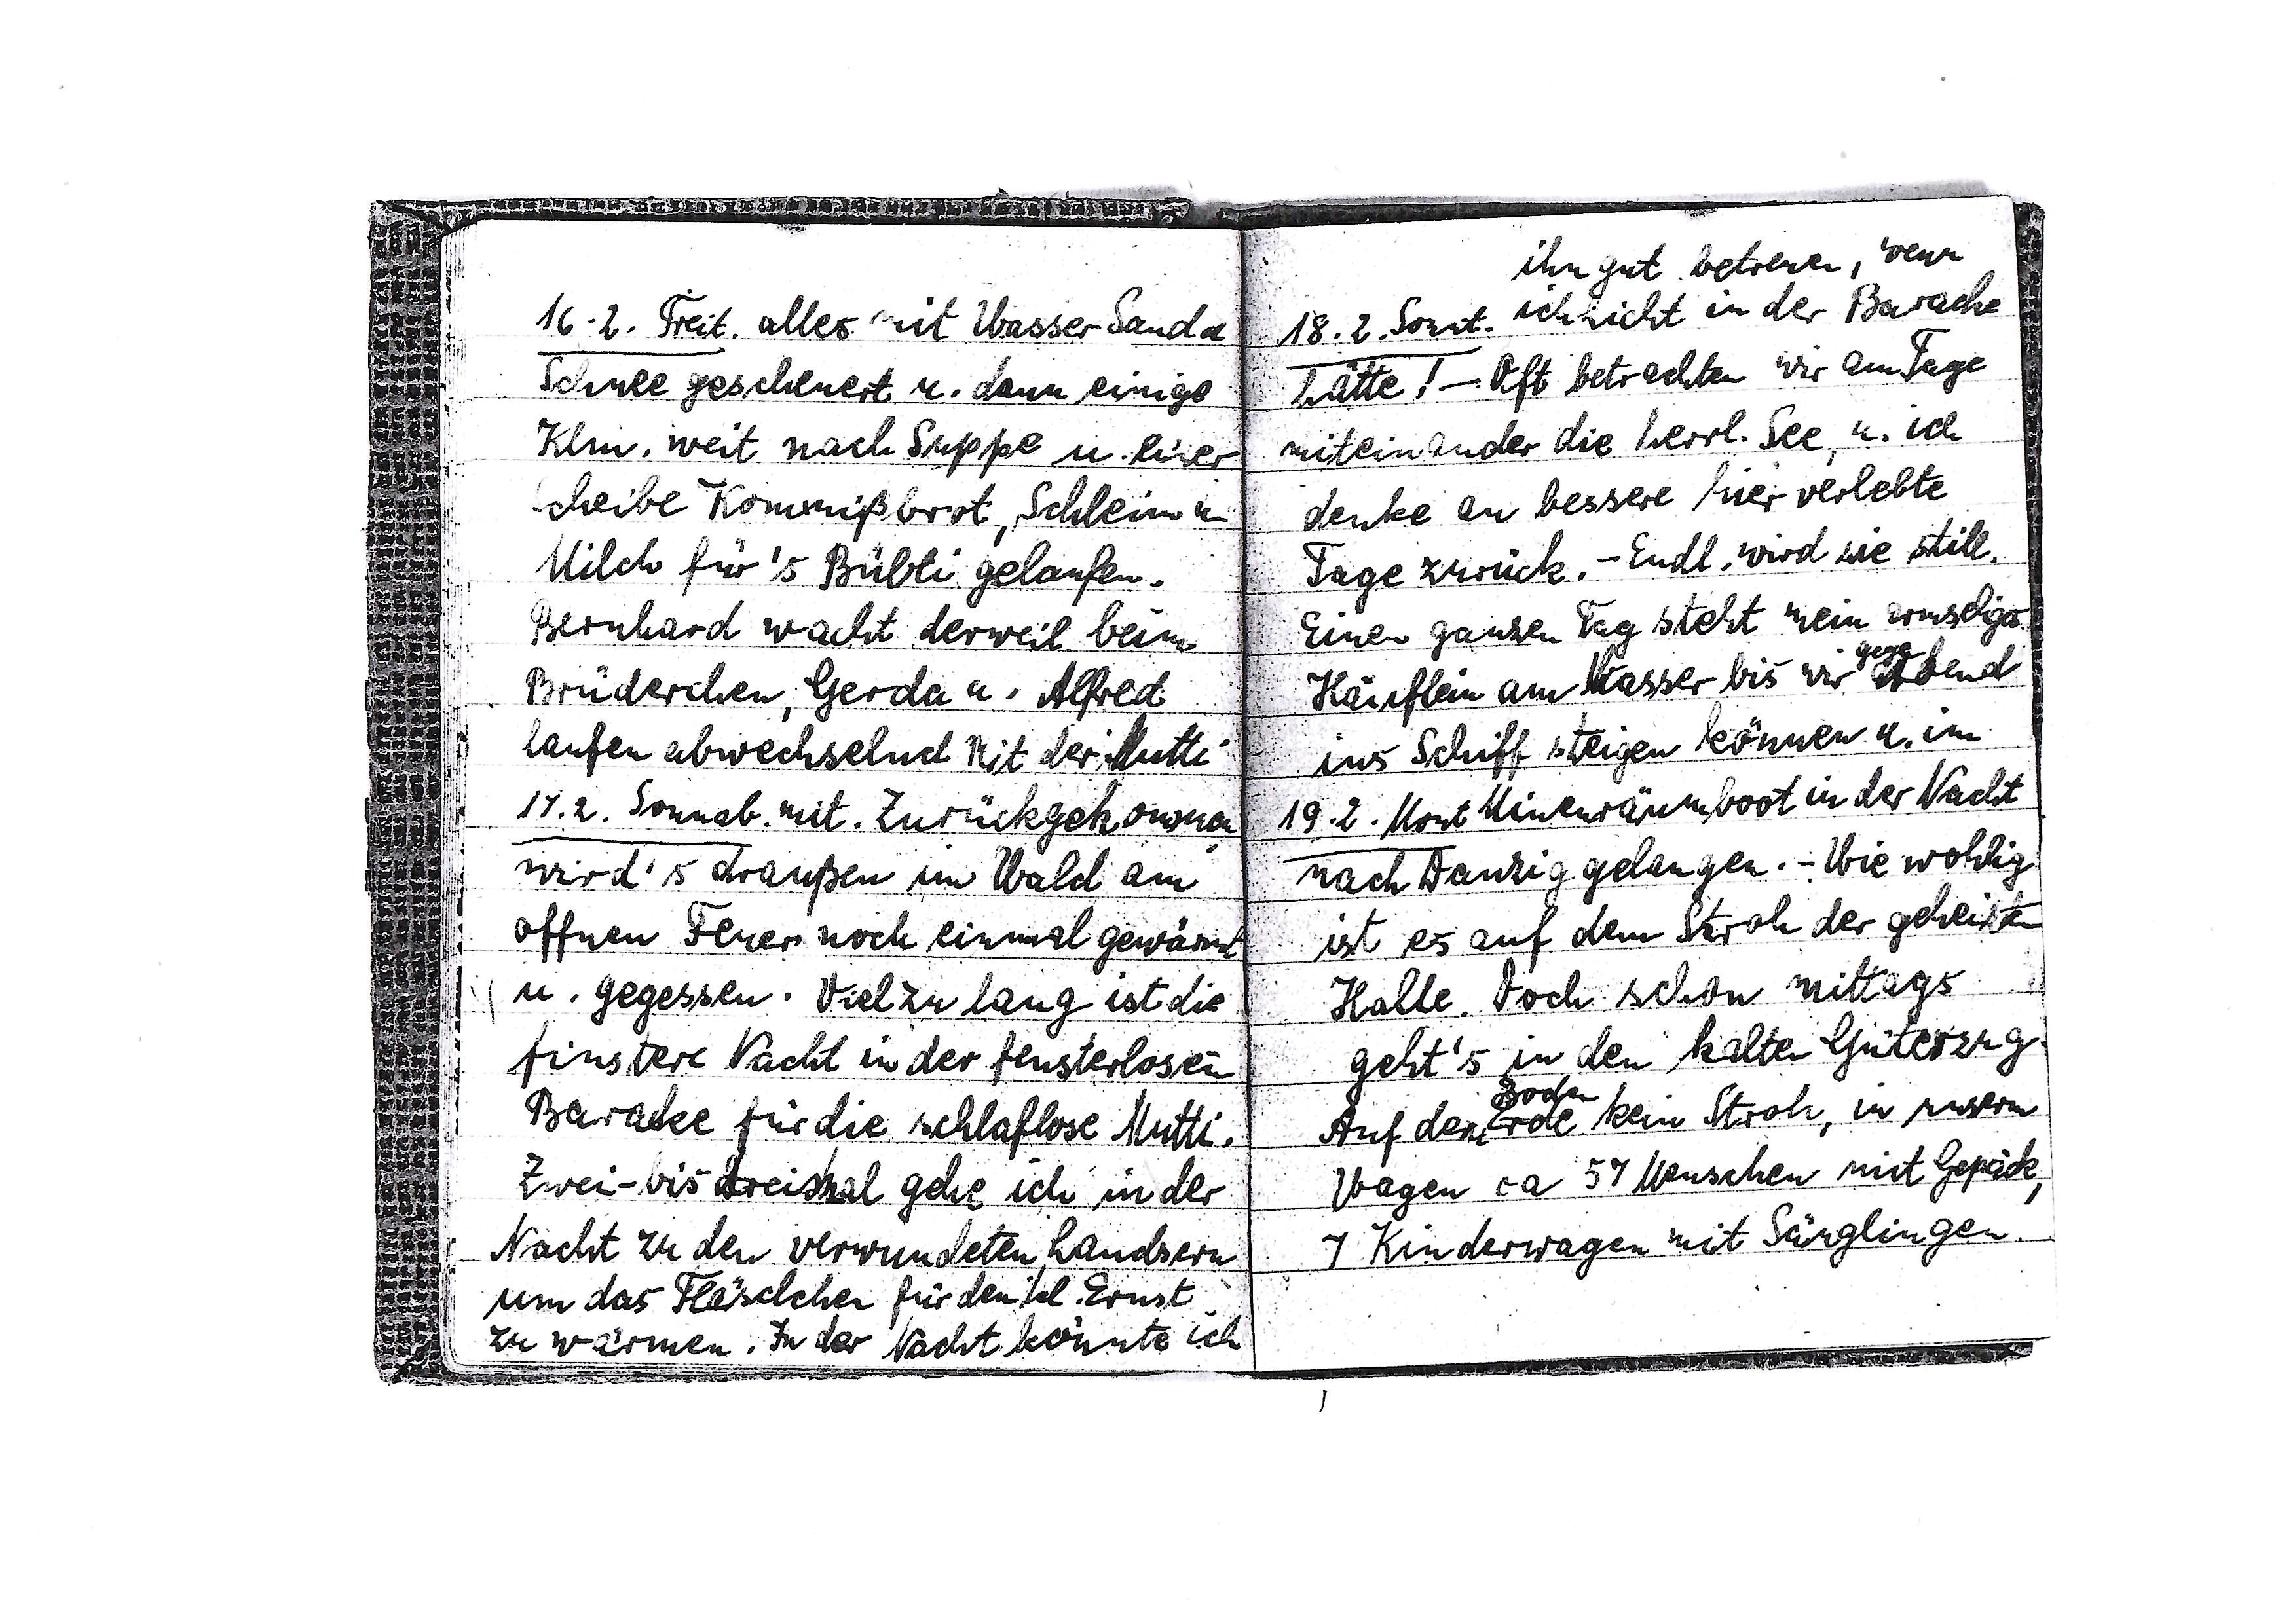 16.2. Freit. alles mit Wasser Sand u
Schnee gescheuert u. dann einige
Klm. weit nach Suppe u. einer
Scheibe Kommißbrot, Schleim u
Milch für's Bübli gelaufen.
Bernhard wacht derweil beim
Brüderchen, Gerda u. Alfred
laufen abwechselnd mit der Mutti
17.2. Sonnab. mit. Zurückgekommen
wird's draußen im Wald am
offnen Feuer noch einmal gewärmt
u. gegessen. Viel zu lang ist die
finstere Nacht in der fensterlosen
Baracke für die schlaflose Mutti.
Zwei- bis dreimal gehe ich in der
Nacht zu den verwundeten Landsern
um das Fläschchen für den kl. Ernst
zu wärmen. In der Nacht könnte ich
ihn gut betreuen, wenn
18.2. Sonnt. ich nicht in der Barache
hätte! – Oft betrachten wir am Tage
miteinander die herrl. See, u. ich
denke an bessere hier verlebte
Tage zurück. – Endl. wird sie still.
Einen ganzen Tag steht mein armseliges
Häuflein am Wasser bis wir gegen Abend
ins Schiff steigen können u. im
19.2. Mont Minenräumboot in der Nacht
nach Danzig gelangen. – Wie wohlig
ist es auf dem Stroh der geheizten
Halle. Doch schon mittags
geht's in den kalten Güterzug.
Auf dem Boden kein Stroh, in unserm
Wagen ca 57 Menschen mit Gepäck,
7 Kinderwagen mit Säuglingen.